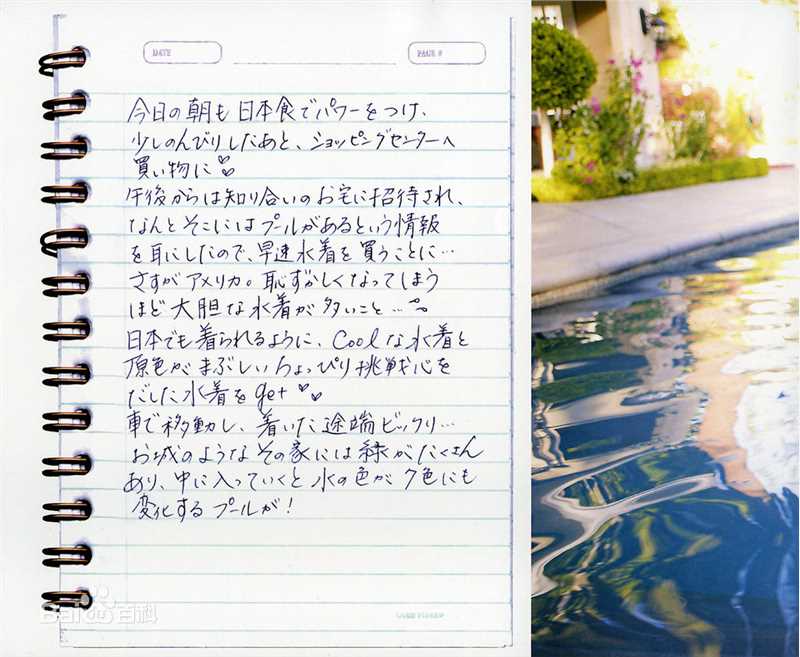 DATE
PAGE #
今日の朝も日本食でパワーをつけ、
少しのんびりしたあと、ショッピングセンターへ
買い物に♡♡
午後からは知り合いのお宅に招待され、
なんとそこにはプールがあるという情報
を耳にしたので、早速水着を買うことに…
さすがアメリカ。恥ずかしくなってしまう
ほど大胆な水着が多いこと…
日本でも着られるように、Coolな水着と
原色がまぶしいちょっぴり挑戦心を
だした水着をget♡♡
車で移動し、着いた途端ビックリ…
お城のようなその家には緑がたくさん
あり、中に入っていくと水の色が7色にも
変化するプールが!
Bai百科